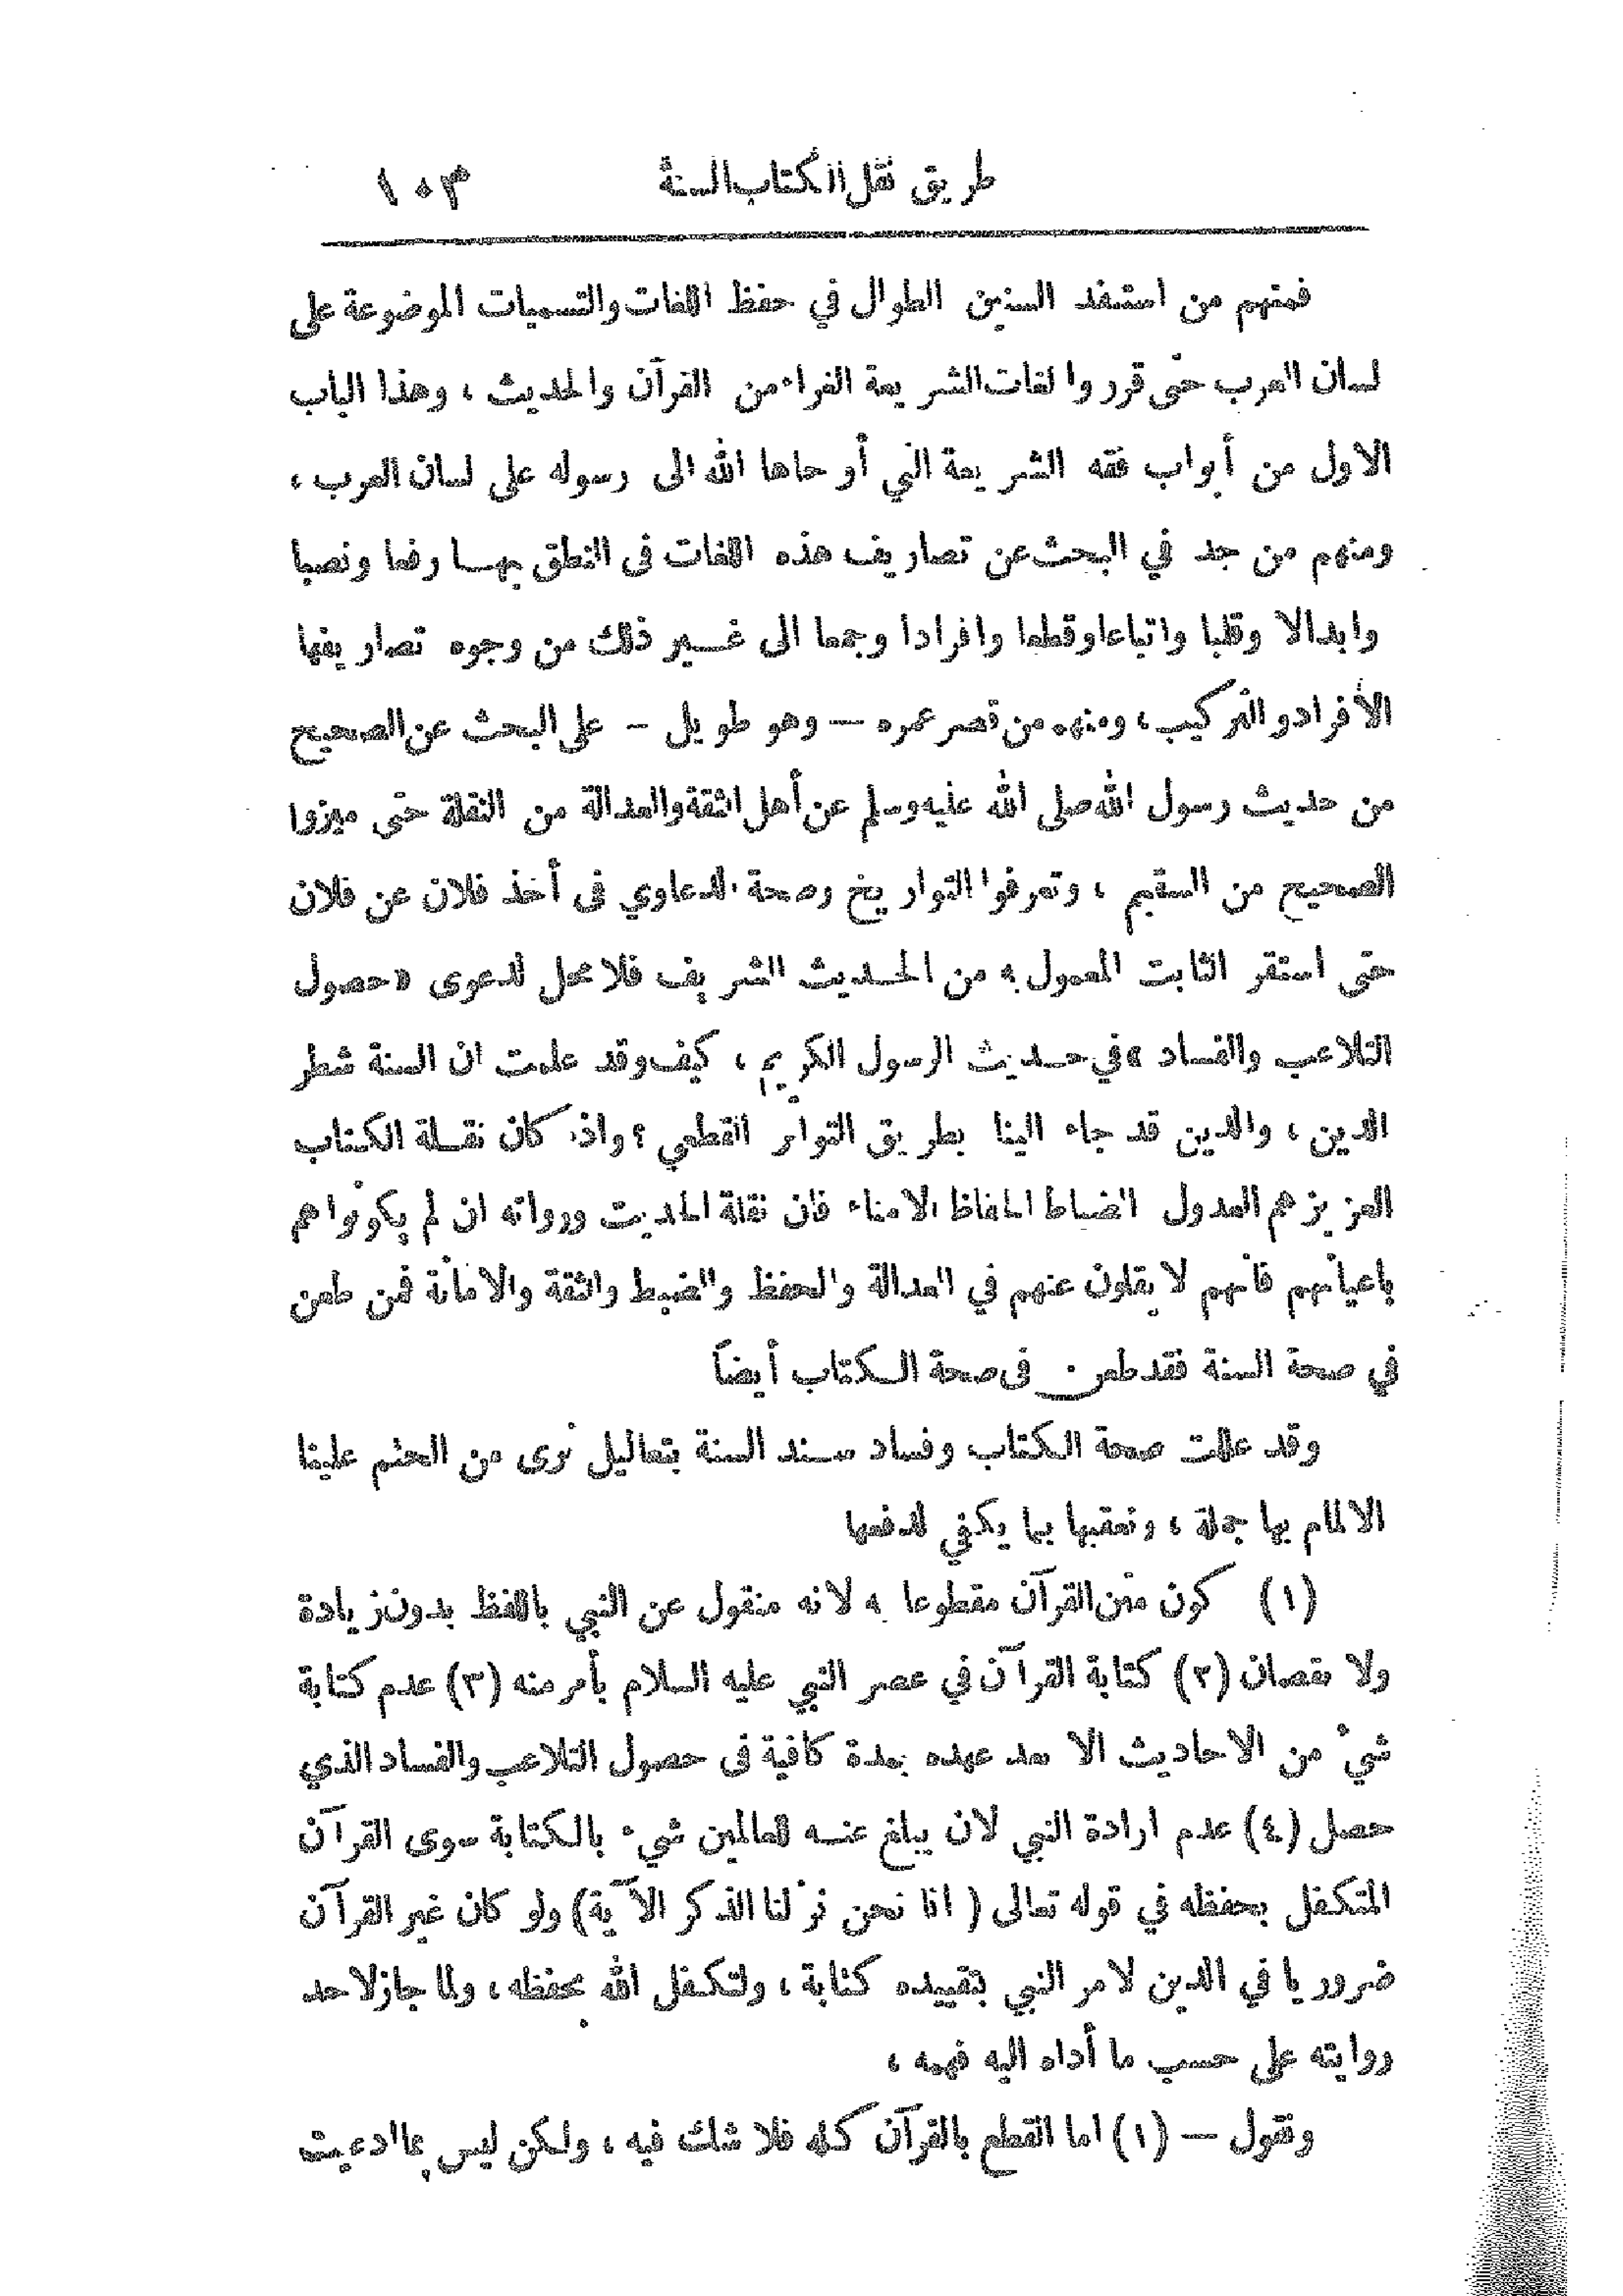 طريق نقل الكتاب السنة ١٠٣
فمنهم من استنفد السنين الطوال في حفظ اللغات والتسميات الموضوعة على
لسان العرب حتى قرروا لغات الشريعة الغراء من القرآن والحديث ، وهذا الباب
الاول من أبواب فقه الشريعة التي أوحاها الله الى رسوله على لسان العرب ،
ومنهم من جد في البحث عن تصاريف هذه اللغات في النطق بها رفعا ونصبا
وابدالا وقلبا واتباعا وقطعا وافرادا وجمعا الى غير ذلك من وجوه تصاريفها
الأفراد والتركيب ، ومنهم من قصر عمره — وهو طويل – على البحث عن الصحيح
من حديث رسول الله صلى الله عليه وسلم عن أهل الثقة والعدالة من النقلة حتى ميزوا
الصحيح من السقيم ، وتعرفوا التواريخ وصحة الدعاوي في أخذ فلان عن فلان
حتى استقر الثابت المعمول به من الحديث الشريف فلا محل لدعوى « حصول
التلاعب والفساد » في حديث الرسول الكريم ، كيف وقد علمت ان السنة شطر
الدين ، والدين قد جاء الينا بطريق التواتر القطعي ؟ واذ كان نقلة الكتاب
العزيز هم العدول الضباط الحفاظ الامناء فان نقلة الحديث ورواته ان لم يكونوا هم
باعيانهم فانهم لا يقلون عنهم في العدالة والحفظ والضبط والثقة والامانة فمن طعن
في صحة السنة فقد طعن في صحة الكتاب أيضاً
وقد عللت صحة الكتاب وفساد سند السنة بتعاليل نرى من الحتم علينا
الالمام بها جملة ، ونعقبها بما يكفي لدفعها
(١) كون متن القرآن مقطوعا به لانه منقول عن النبي باللفظ بدون زيادة
ولا نقصان (٢) كتابة القرآن في عصر النبي عليه السلام بأمر منه (٣) عدم كتابة
شيء من الاحاديث الا بعد عهده بمدة كافية في حصول التلاعب والفساد الذي
حصل (٤) عدم ارادة النبي لان يبلغ عنه للعالمين شيء بالكتابة سوى القرآن
المتكفل بحفظه في قوله تعالى ( انا نحن نزلنا الذكر الآية) ولو كان غير القرآن
ضروريا في الدين لامر النبي بتقييده كتابة ، ولتكفل الله بحفظه ، ولما جاز لاحد
روايته على حسب ما أداه اليه فهمه ،
ونقول — (١) اما القطع بالقرآن كله فلا شك فيه ، ولكن ليس بما ادعيت